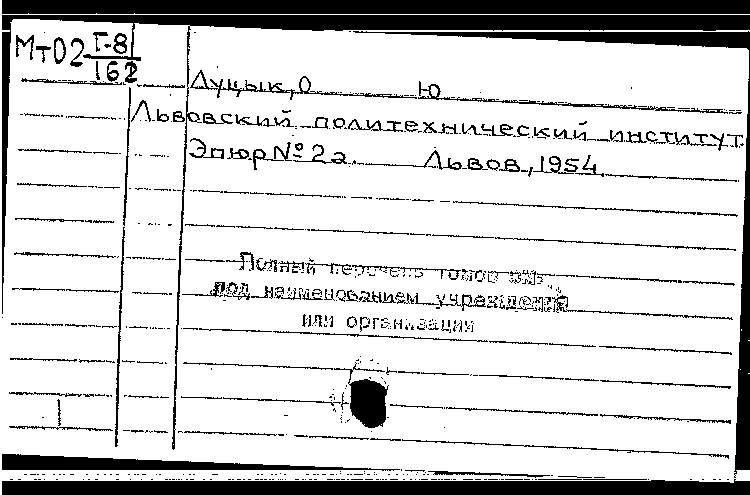 Мт02 Г-8
162
Луцык, О Ю
Львовский политехнический институт.
Эпюр № 2а. Львов, 1954.
Полный перечень томов см.
под наименованием учреждения
или организации